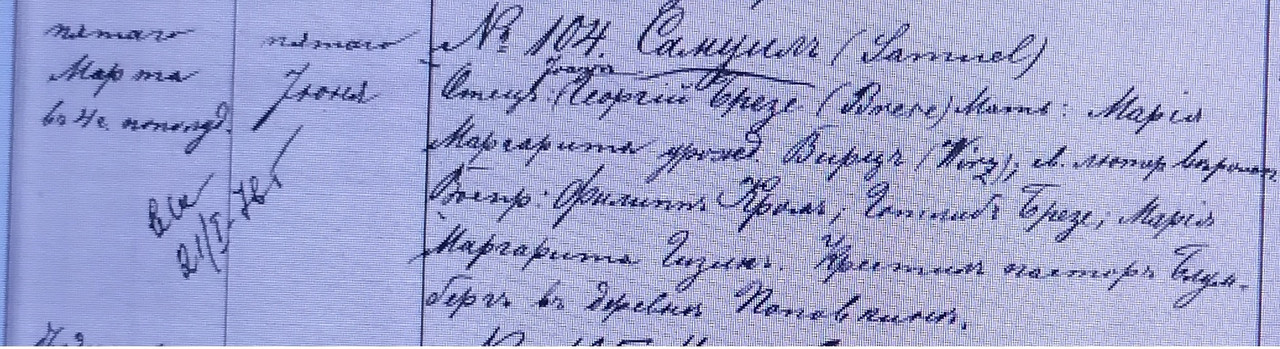 пятаго
Марта
въ 4 ч. пополуд.
пятаго
Іюня
№ 104. Самуилъ (Samuel)
Отецъ: Георгій Брезе (Brese) Мать: Марія
Маргарита урожд. Вирцъ (Wirz), ев. лютер. вѣроисп.
Воспр: Филиппъ Кромъ, Готлибъ Брезе, Марія
Маргарита Гизинъ. Крестилъ пасторъ Блум-
бергъ въ деревнѣ Поповкинѣ.